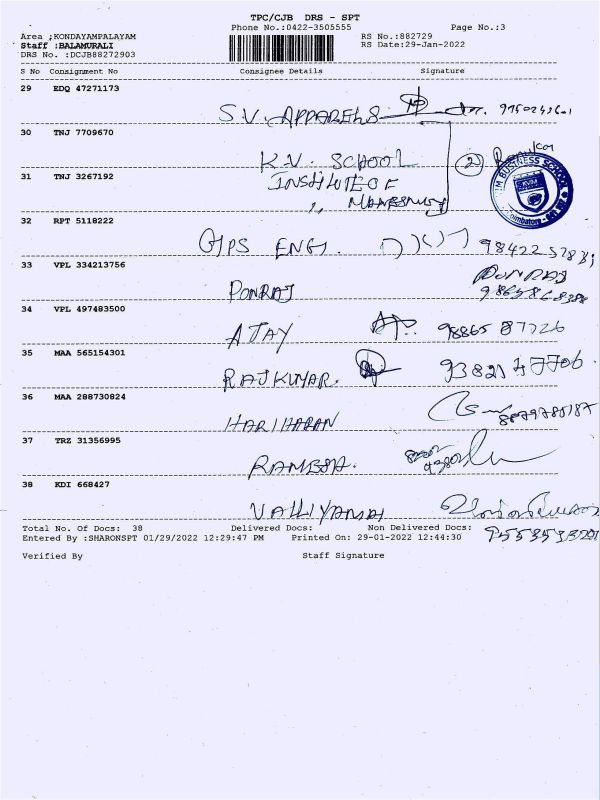 TPC/CJB DRS - SPT
Phone No.:0422-3505555 Page No.:3
Area ;KONDAYAMPALAYAM RS No.:882729
Staff :BALAMURALI RS Date:29-Jan-2022
DRS No. :DCJB88272903
S No Consignment No Consignee Details Signature
29 EDQ 47271173
S.V. APPARELS
30 TNJ 7709670
K.V. SCHOOL
31 TNJ 3267192
INSTITUTE OF
BUSINESS SCHOOL
Coimbatore
32 RPT 5118222
GPS ENG.
33 VPL 334213756
PONRAJ
PONRAJ
34 VPL 497483500
AJAY 98865 87726
35 MAA 565154301
RAJKUMAR. 93821 47706
36 MAA 288730824
HARIHARAN
37 TRZ 31356995
RAMESH.
38 KDI 668427
VALLIYAMA
Total No. Of Docs: 38 Delivered Docs: Non Delivered Docs:
Entered By :SHARONSPT 01/29/2022 12:29:47 PM Printed On: 29-01-2022 12:44:30
Verified By Staff Signature